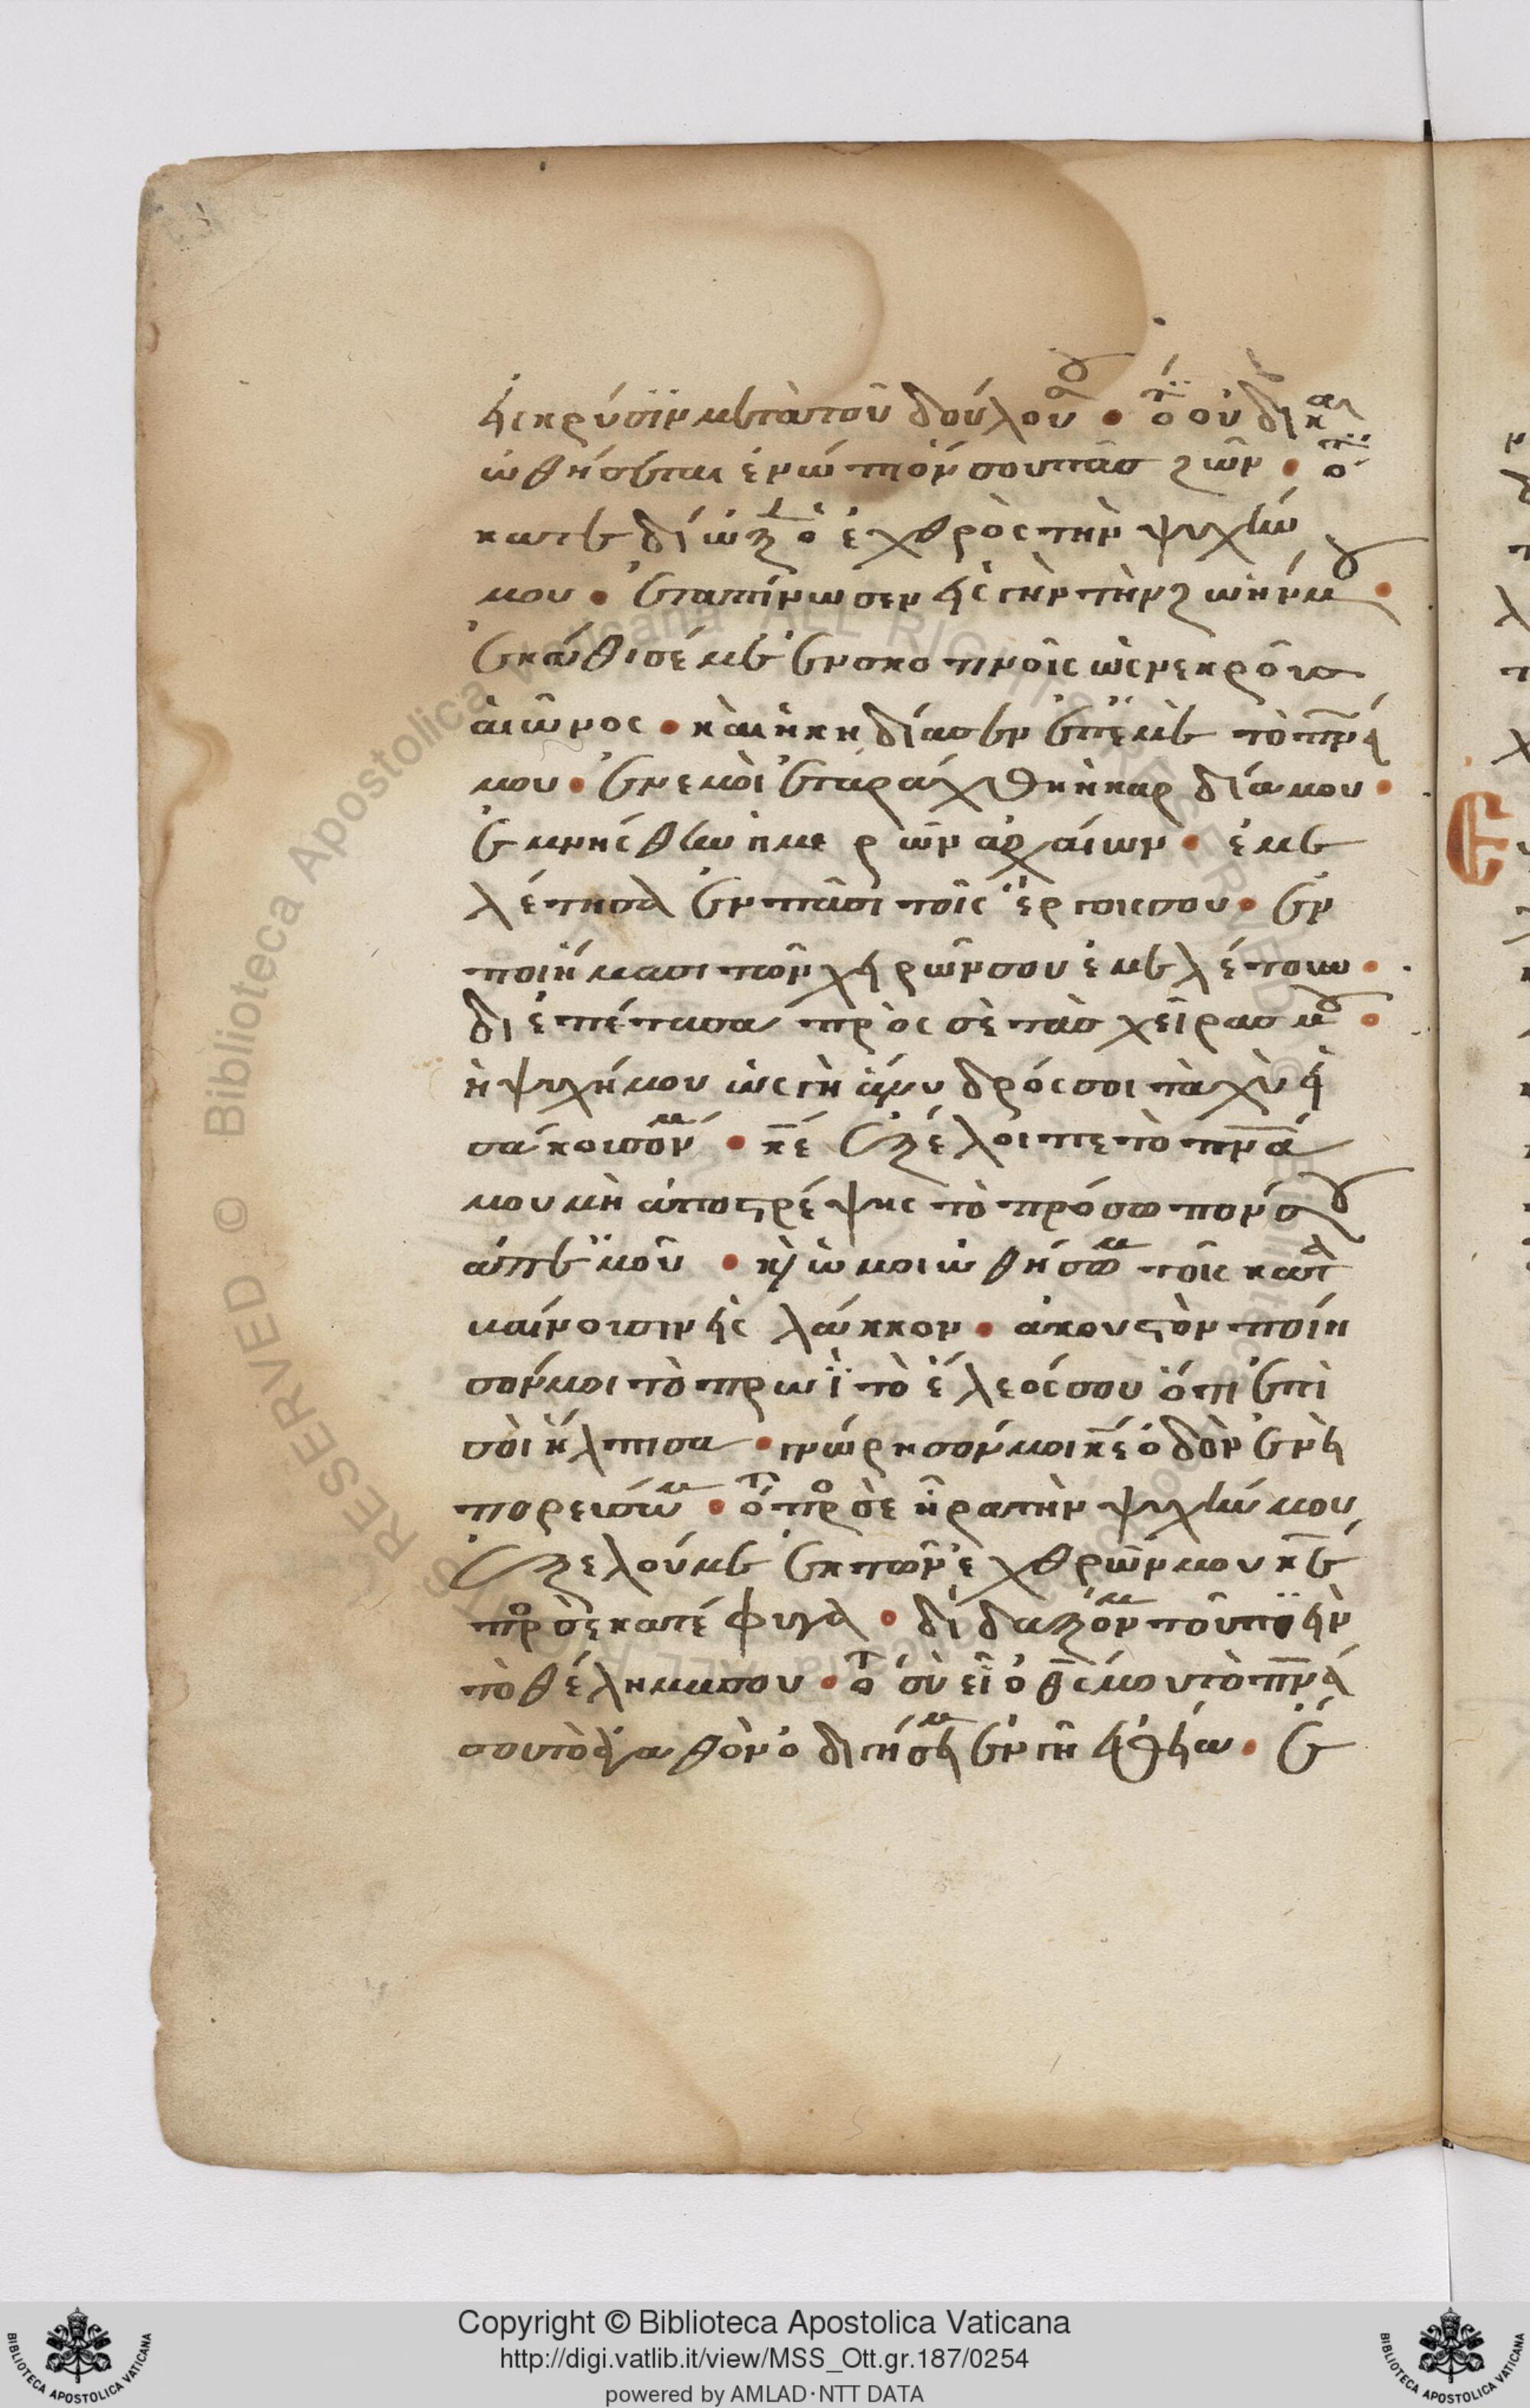 εἰς κρύσϊν μετὰ τοῦ δούλου σου • ὅτι οὐ δικαι
ωθήσεται ἐνώπιόν σου πᾶσ ζῶν • ὅτι
κατεδίωξεν ὁ ἐχθρὸς τὴν ψυχήν
μου • ἐταπίνωσεν εἰς γῆν τὴν ζωήν μου •
ἐκάθισέ με ἐν σκοτινοῖς ὡς νεκροὺσ
αἰῶνος • καὶ ἠκηδίασεν ἐπ ἐμὲ τὸ πνά
μου • ἐν ἐμοὶ ἐταράχθη ἡ καρδία μου •
ἐμνήσθην ἡμερῶν ἀρχαίων • ἐμε
λέτησα ἐν πᾶσι τοῖς ἔργοις σου • ἐν
ποιήμασι τῶν χειρῶν σου ἐμελέτουν •
διεπέτασα πρὸς σὲ τὰσ χεῖρασ μου •
ἡ ψυχή μου ὡς γῆ ἄνυδρός σοι ταχὺ εἰ
σάκουσόν μου • κε ἐξέλοιπε τὸ πνά
μου μὴ ἀποστρέψης τὸ πρόσωπόν σου
ἀπ ἐμοῦ • κὶ ὡμοιωθήσωμαι τοῖς κατα
βαίνουσιν εἰς λάκκον • ἀκουστὸν ποίη
σόν μοι τὸ πρωῒ τὸ ἔλεός σου ὅτι ἐπὶ
σοὶ ἤλπισα • γνώρησόν μοι κε ὁδὸν ἐν ἧ
πορεύσωμαι • ὅτι πρὸς σὲ ἦρα τὴν ψυχήν μου
ἐξελοῦ με ἐκ τῶν ἐχθρῶν μου κε
πρὸς σὲ κατέφυγα • δίδαξόν με τοῦ ποιεῖν
τὸ θέλημά σου • ὅτι σὺ εἶ ὁ θς μου τὸ πνά
σου τὸ ἀγαθὸν ὁδιγήσει με ἐν γῆ εὐθεία • ἕ
Copyright © Biblioteca Apostolica Vaticana
http://digi.vatlib.it/view/MSS_Ott.gr.187/0254
powered by AMLAD·NTT DATA